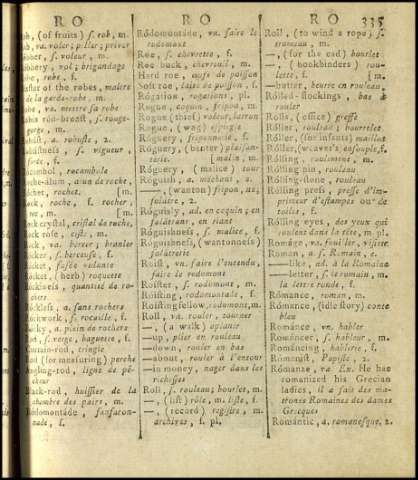 R O
R O
R O
335
ob, (of fruits) s. rob, m.
ob, va. voler; piller; priver
obber, s. voleur, m.
obbery, vol; brigandage
obe, robe, f.
after of the robes, maître
de la garde-robe, m.
obe, va. mettre sa robe
obin red-breast, s. rouge-
gorge, m.
obúst, a. robuste, 2.
obústness, s. vigueur,
force, f.
ocambol, rocambole
oche-álum, alun de roche,
óchet, rochet. [m.
ock, roche, f. rocher,
m. [m.
ock crystal, cristal de roche,
ock rose, cist, m.
ock, va. bercer; branler
ocker, s. berceuse, f.
ocket, fusée volante
ocket, (herb) roquette
óckiness, quantité de ro-
chers
óckless, a. sans rochers
óckwork, s. rocaille, f.
ócky, a. plein de rochers
od, s. verge, baguette, f.
Curtain-rod, tringle
od (for measuring) perche
Angling-rod, ligne de pê-
cheur
Black-rod, huissier de la
chambre des pairs, m.
Rodomontáde, fanfaron-
nade, f.
Ródomontáde, va. faire le
rodomont
Roe, s. chevrette, f.
Roe buck, chevreuil, m.
Hard roe, œufs de poisson
Soft roe, laite de poisson, f.
Rogátion, rogations, pl.
Rogue, coquin, fripon, m.
Rogue (thief) voleur, larron
Rogue, (wag) espiegle
Róguery, friponnerie, f.
Róguery, (banter) plaisan-
terie. [malin, m.
Róguery, (malice) tour
Róguish, a. méchant, 2.
—, (wanton) fripon, ne,
folâtre, 2.
Róguishly, ad. en coquin; en
folâtrant, en riant
Róguishness, s. malice, f.
Róguishness, (wantonness)
folâtrerie
Roist, va. faire l'entendu,
faire le rodomont
Roister, s. rodomont, m.
Roisting, rodomontade, f.
Roistingfellow, rodomont, m.
Roll, va. rouler, tourner
—, (a walk) aplanir
—up, plier en rouleau
—down, rouler en bas
—about, rouler à l'entour
—in money, nager dans les
richesses
Roll, s. rouleau; bourlet, m.
—, (list) rôle, m. liste, f.
—, (record) registre, m.
archives, f. pl.
Roll, (to wind a rope) s.
travouau, m.
—, (for the ead) bourlet
—, (bookbinders) rou-
lette, f. [m.
—butter, beurre en rouleau,
Rólled-stockings, bas à
rouler
Rolls, (office) greffe
Róller, rouleau; bourrelet
Róller, (for infants) maillot
Róller, (weaver's) ensouple, f.
Rólling, roulement, m.
Rólling pin, rouleau
Rólling-stone, rouleau
Rólling press, presse d'im-
primeur d'estampes ou de
toiles, f.
Rólling eyes, des yeux qui
roulent dans la tête, m. pl.
Romáge, va. fouiller, visiter
Roman, a. s. Romain, e.
—like, ad. à la Romaine
—letter, s. le romain, m.
la lettre ronde, f.
Románce, roman, m.
Románce, (idle story) conte
bleu
Románce, vn. habler
Románcer, s. habieur, m.
Románcing, hablerie, f.
Rómanist, Papiste, m.
Rómanize, va. Ex. He has
romanized his Grecian
ladies, il a fait des ma-
trones Romaines des dames
Grecques
Romántic, a. romanesque, 2.